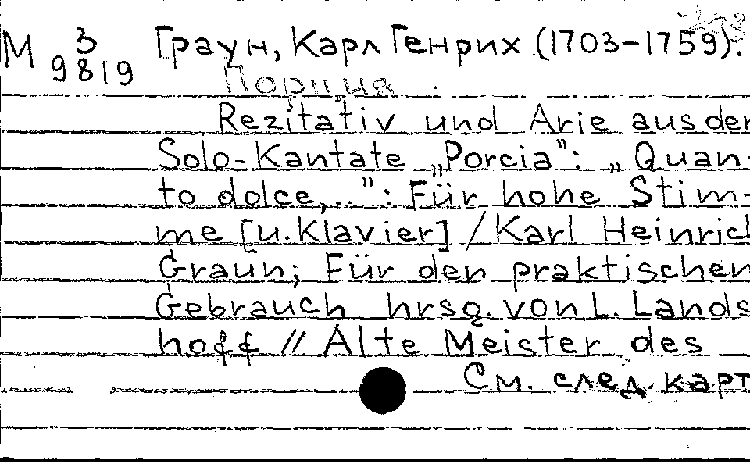 М 3 Граун, Карл Генрих (1703-1759).
9819 Порция.
Rezitativ und Arie aus der
Solo-Kantate „Porcia": „Quan-
to dolce,..": Für hohe Stim-
me [u. Klavier] / Karl Heinrich
Graun; Für den praktischen
Gebrauch hrsg. von L. Lands
hoff // Alte Meister des
См. след. карт